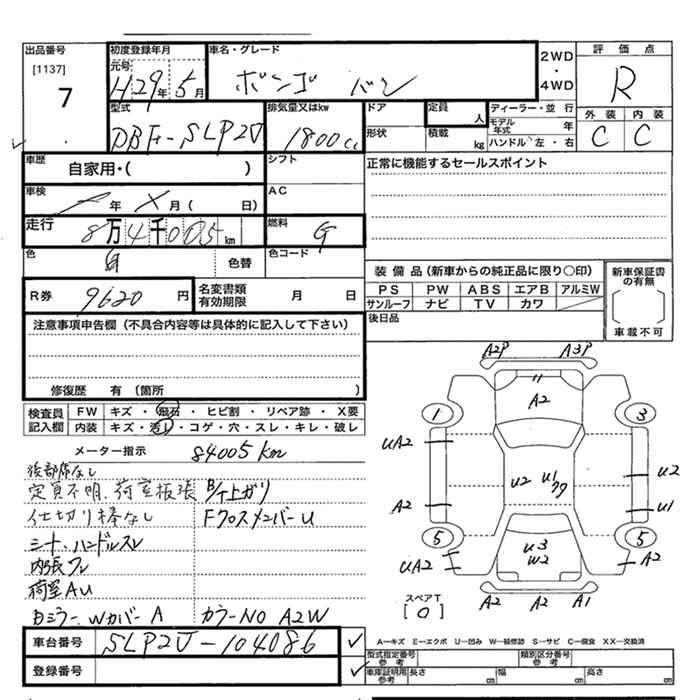 出品番号 初度登録年月 車名・グレード 2WD・4WD 評価点
[1137] 元号
7 H29年5月 ボンゴ バン R
型式 排気量又はkw ドア 定員 人 ディーラー・並行 外装 内装
DBF-SLP2V 1800cc 形状 積載 kg モデル年式 年 C C
ハンドル 左・右
車歴 自家用・( ) シフト 正常に機能するセールスポイント
車検 年 月( 日) AC
走行 8万4千005km 燃料 G
色 白 色替 色コード
装備品(新車からの純正品に限り○印) 新車保証書の有無
R券 9620円 名変書類有効期限 月 日 PS PW ABS エアB アルミW
サンルーフ ナビ TV カワ 車載不可
注意事項申告欄(不具合内容等は具体的に記入して下さい) 後日品
修復歴 有(箇所 )
検査員記入欄 FW キズ・飛石・ヒビ割・リペア跡・X要
内装 キズ・汚し・コゲ・穴・スレ・キレ・破レ
メーター指示 84005km
後部席なし
定員不明、荷室板張 B/下上ガリ
仕切り棒なし FクロスメンバーU
シート、ハンドルスレ
内張ワレ
荷室AU
Bミラー、WカバーA カラーNO A2W
車台番号 SLP2V-104086
登録番号
A2P A3P
A2
1 3
UA2 U2
U2 U1 ワワ
A2 U1
5 5
U3
W2
UA2 A2
A2 A2 A1
スペアT
[0]
A―キズ E―エクボ U―凹み W―補修跡 S―サビ C―腐食 XX―交換済
型式指定番号 参考 類別区分番号 参考
車庫証明用 参考 長さ cm 幅 cm 高さ cm